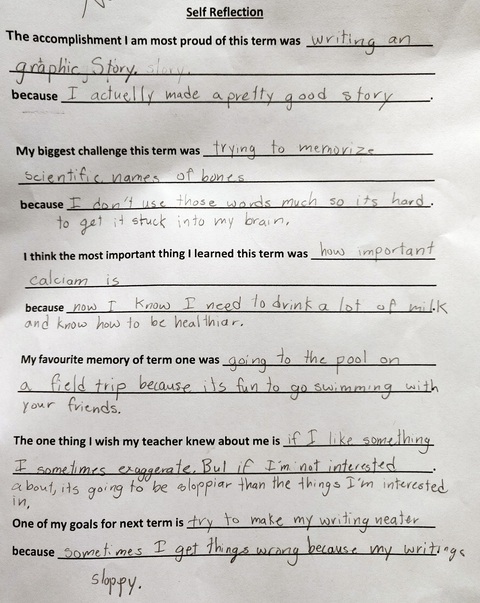 Self Reflection
The accomplishment I am most proud of this term was writing an
graphic Story. story.
because I actuelly made a pretty good story.
My biggest challenge this term was trying to memorize
scientific names of bones
because I don't use those words much so its hard.
to get it stuck into my brain.
I think the most important thing I learned this term was how important
calciam is
because now I know I need to drink a lot of milk
and know how to be healthiar.
My favourite memory of term one was going to the pool on
a field trip because its fun to go swimming with
your friends.
The one thing I wish my teacher knew about me is if I like something
I sometimes exaggerate. But if I'm not interested.
about, its going to be sloppiar than the things I'm interested
in,
One of my goals for next term is try to make my writing neater
because sometimes I get things wrong because my writings
sloppy.